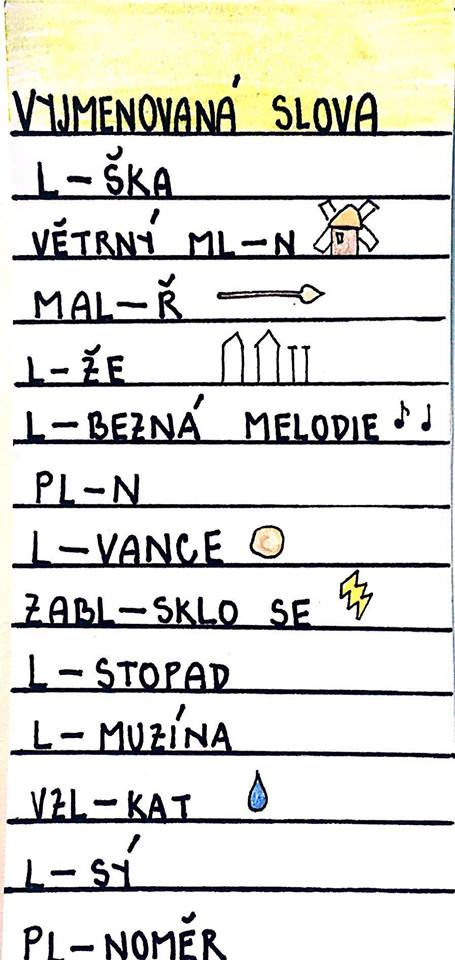 VYJMENOVANÁ SLOVA
L–ŠKA
VĚTRNÝ ML–N
MAL–Ř
L–ŽE
L–BEZNÁ MELODIE
PL–N
L–VANCE
ZABL–SKLO SE
L–STOPAD
L–MUZÍNA
VZL–KAT
L–SÝ
PL–NOMĚR